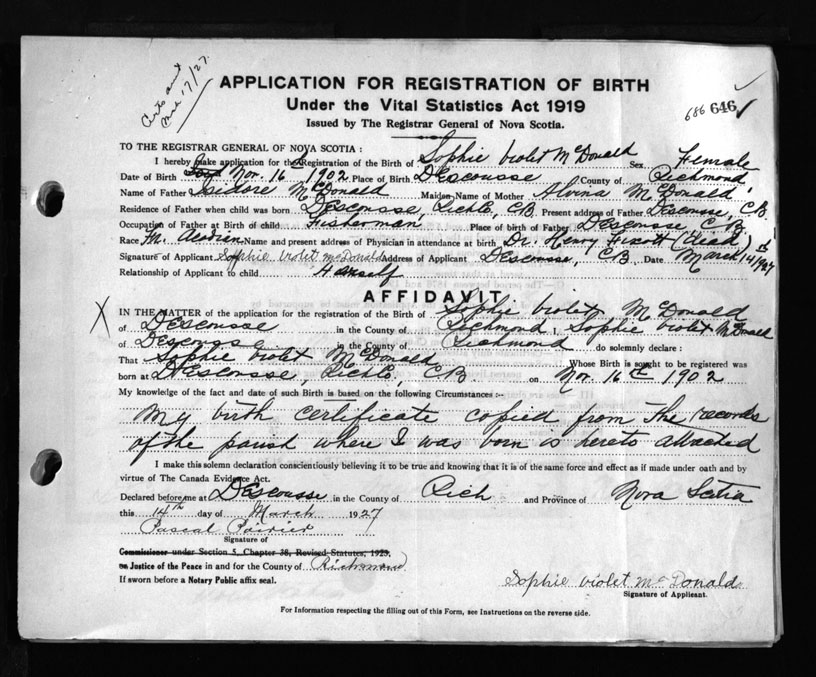 Certs and
Mar 17/27.
APPLICATION FOR REGISTRATION OF BIRTH
Under the Vital Statistics Act 1919
Issued by The Registrar General of Nova Scotia.
686 646
TO THE REGISTRAR GENERAL OF NOVA SCOTIA:
I hereby make application for the Registration of the Birth of Sophie Violet McDonald Sex Female
Date of Birth Nov. 16th 1902. Place of Birth DEscousse County of Richmond
Name of Father Isidore McDonald Maiden Name of Mother Alvina McDonald
Residence of Father when child was born DEscousse, Rich Co, C.B. Present address of Father DEscousse, C.B.
Occupation of Father at Birth of child Fisherman Place of birth of Father DEscousse, C.B.
Race Name and present address of Physician in attendance at birth Dr. Henry (dead)
Signature of Applicant Sophie Violet McDonald Address of Applicant DEscousse, C.B. Date March 14th 1927
Relationship of Applicant to child Herself
AFFIDAVIT
X
IN THE MATTER of the application for the registration of the Birth of Sophie Violet McDonald
of DEscousse in the County of Richmond I, Sophie Violet McDonald
of DEscousse in the County of Richmond do solemnly declare:
That Sophie Violet McDonald Whose Birth is sought to be registered was
born at DEscousse, Rich Co, C.B. on Nov. 16th 1902
My knowledge of the fact and date of such Birth is based on the following Circumstances:-
My birth certificate copied from the records
of the parish where I was born is hereto attached
I make this solemn declaration conscientiously believing it to be true and knowing that it is of the same force and effect as if made under oath and by
virtue of The Canada Evidence Act.
Declared before me at DEscousse in the County of Rich and Province of Nova Scotia
this 14th day of March 1927
Pascal Poirier
Signature of
Commissioner under Section 5, Chapter 38, Revised Statutes, 1923.
or Justice of the Peace in and for the County of Richmond
If sworn before a Notary Public affix seal.
Sophie Violet McDonald
Signature of Applicant.
For Information respecting the filling out of this Form, see Instructions on the reverse side.